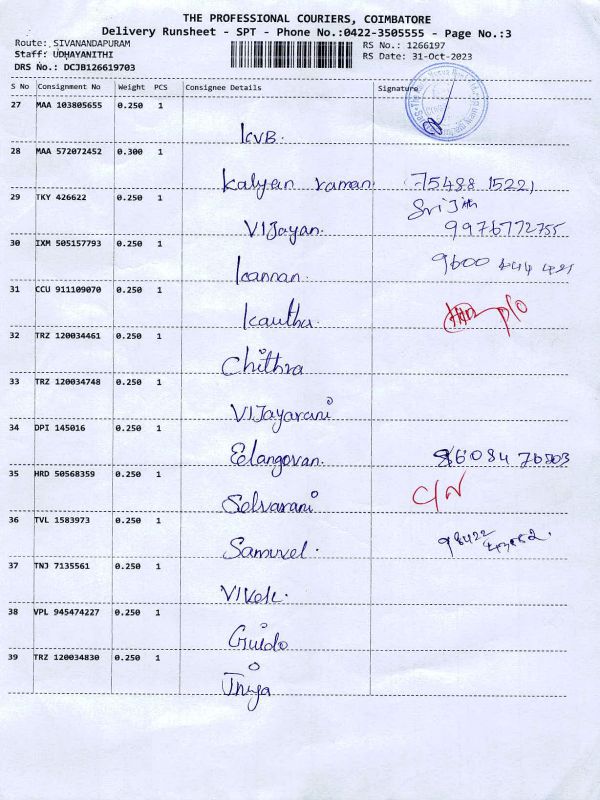 THE PROFESSIONAL COURIERS, COIMBATORE
Delivery Runsheet - SPT - Phone No.:0422-3505555 - Page No.:3
Route: SIVANANDAPURAM RS No.: 1266197
Staff: UDHAYANITHI RS Date: 31-Oct-2023
DRS No.: DCJB126619703
S No Consignment No Weight PCS Consignee Details Signature
27 MAA 103805655 0.250 1
KVB.
28 MAA 572072452 0.300 1
Kalyan Raman 75488 15221
29 TKY 426622 0.250 1 Srijith
VIJayan. 9976772755
30 IXM 505157793 0.250 1
Kannan. 9600
31 CCU 911109070 0.250 1
Kavitha. p/o
32 TRZ 120034461 0.250 1
Chithra
33 TRZ 120034748 0.250 1
VIJayarani
34 DPI 145016 0.250 1
Elangovan.
35 HRD 50568359 0.250 1 C/N
Selvarani
36 TVL 1583973 0.250 1
Samuvel. 98422
37 TNJ 7135561 0.250 1
38 VPL 945474227 0.250 1
Guido
39 TRZ 120034830 0.250 1